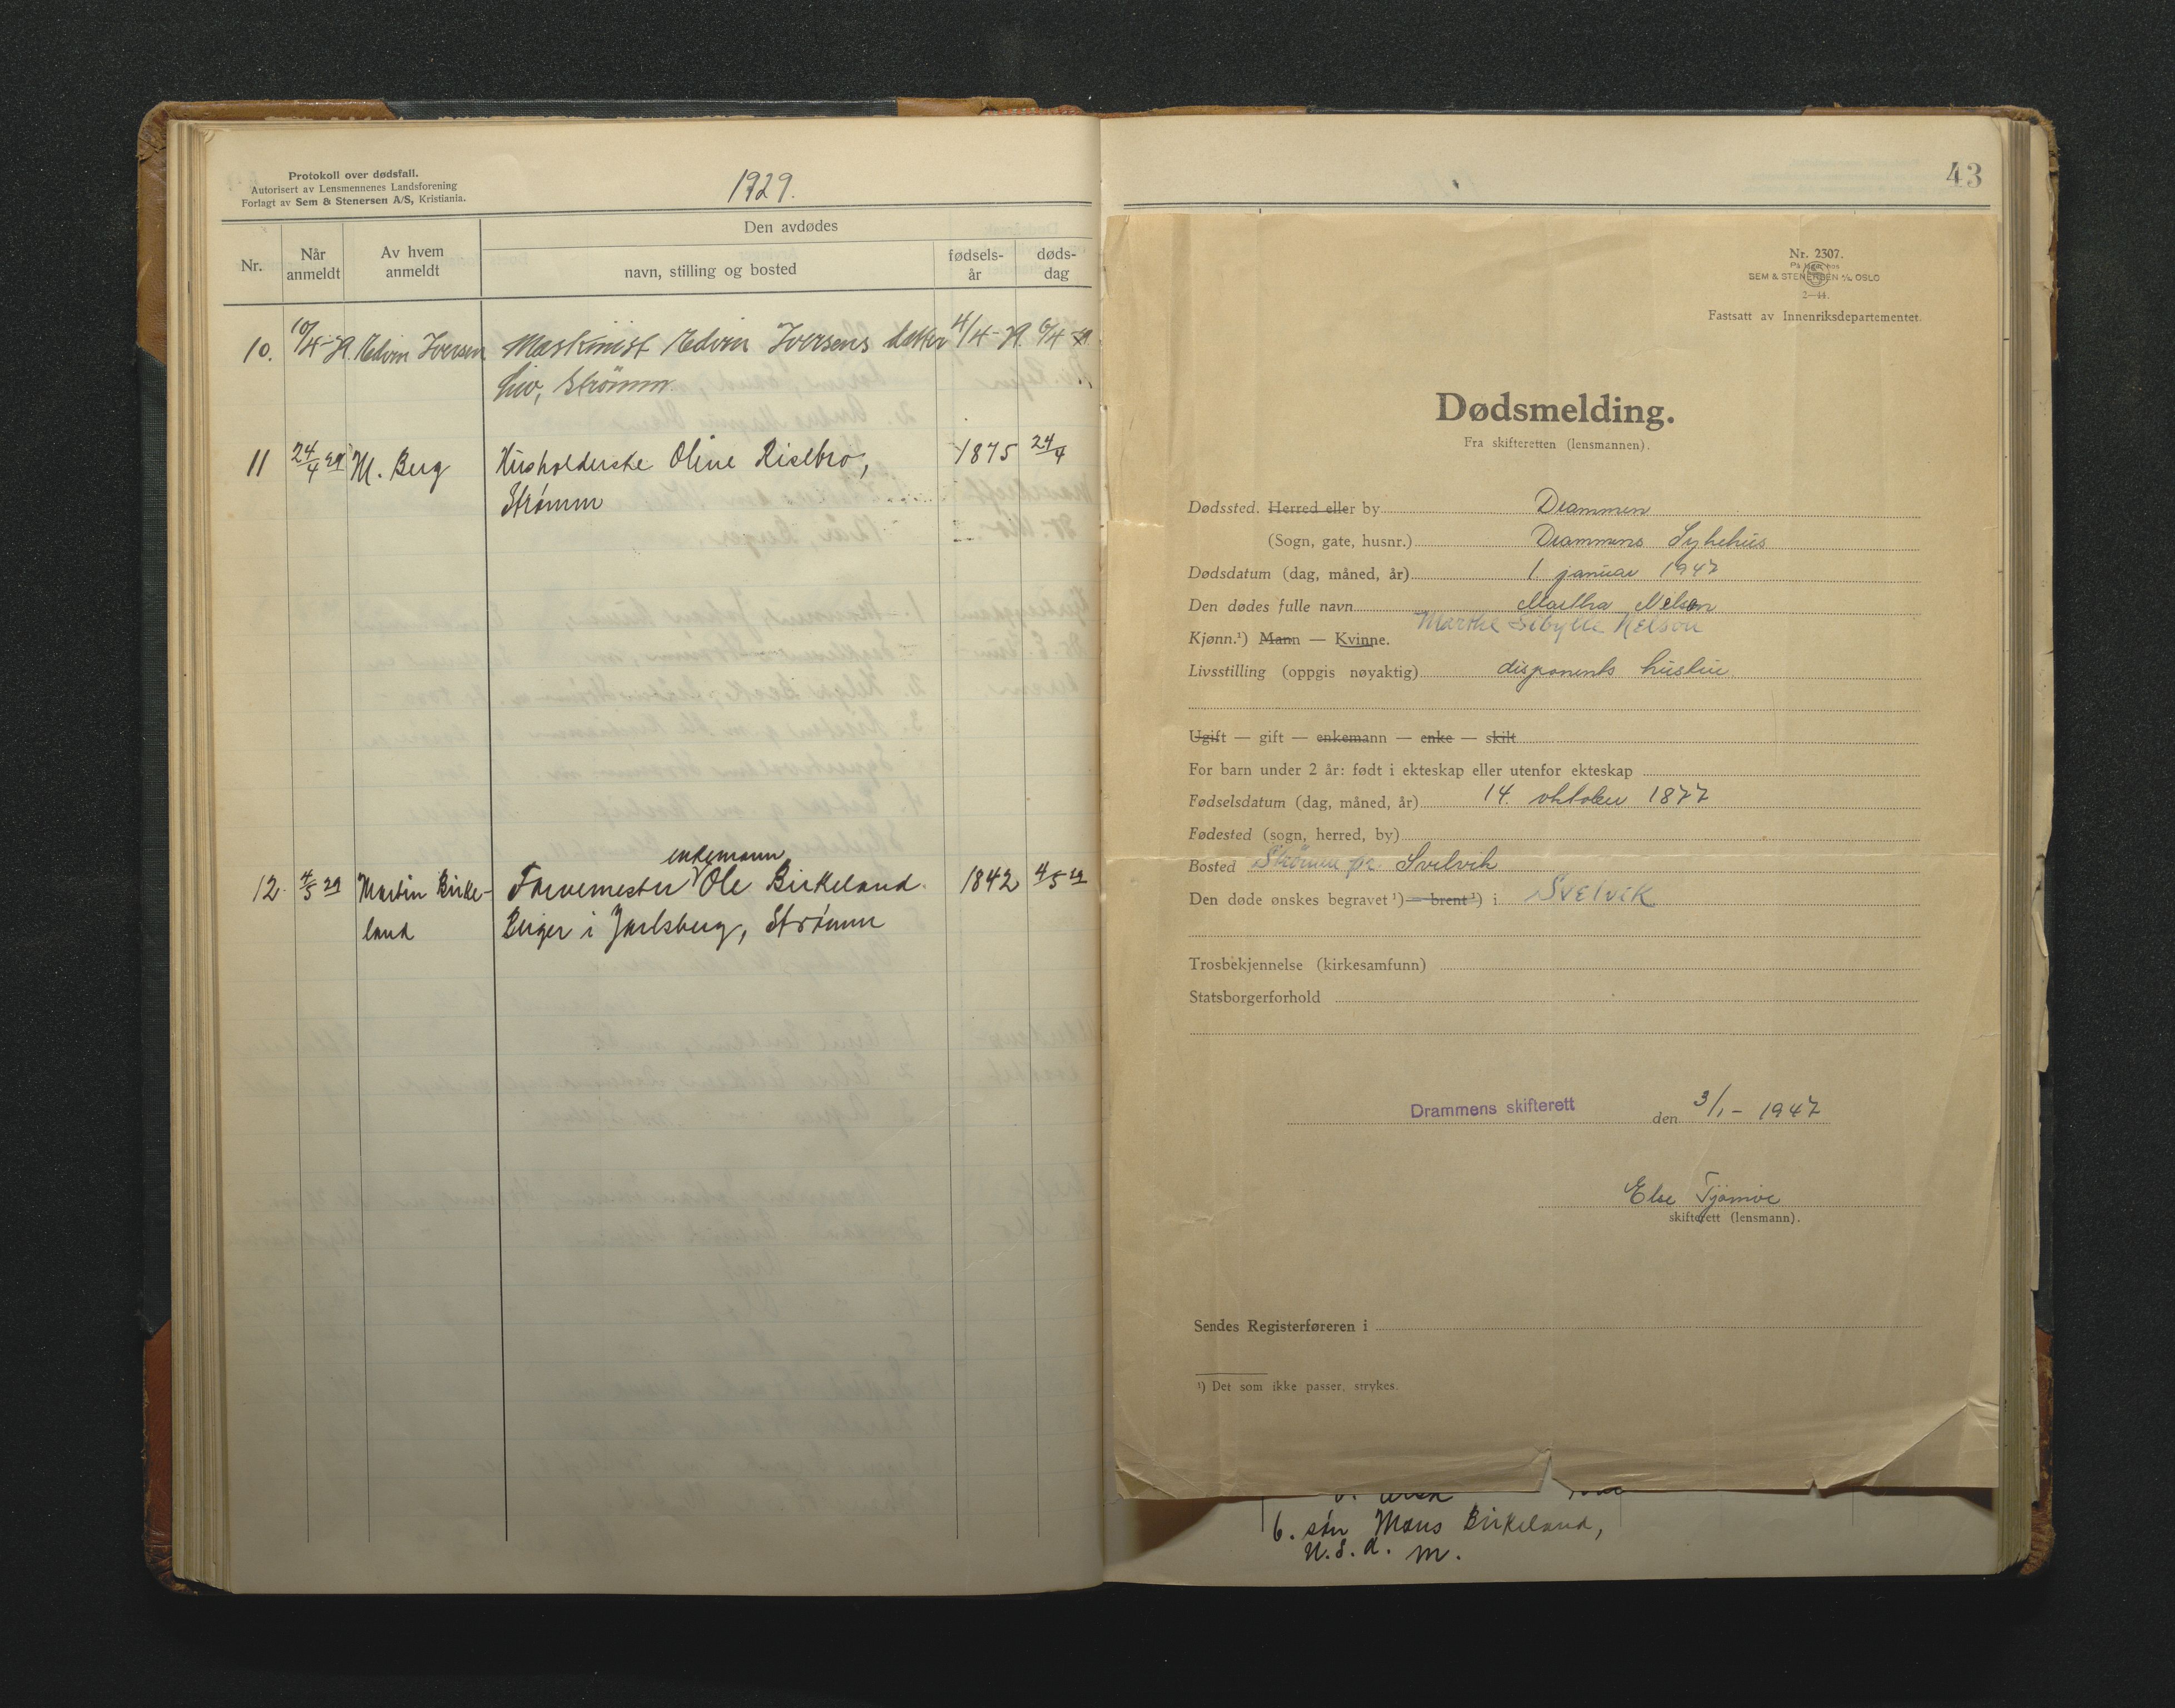 Protokoll over dødsfall.
Autorisert av Lensmennenes Landsforening
Forlagt av Sem & Stenersen A/S, Kristiania.
1929.
Nr.
Når anmeldt
Av hvem anmeldt
Den avdødes
navn, stilling og bosted
fødselsår
dødsdag
10. 10/4-29. Edvin Iversen Maskinist Edvin Iversens datter 4/4-29. 6/4 29.
Liv, Strömm.
11 24/4 29 M. Berg Husholderske Oline Riselbro, 1875 24/4
Strømm
enkemann
12. 4/5 29 Martin Birke- Farvemester Ole Birkeland. 1842 4/5 29
land Berger i Jarlsberg, Strømm
43
Nr. 2307.
På lager hos
SEM & STENERSEN A/S, OSLO
2—44.
Fastsatt av Innenriksdepartementet.
Dødsmelding.
Fra skifteretten (lensmannen).
Dødssted. Herred eller by Drammen
(Sogn, gate, husnr.) Drammens Sykehus
Dødsdatum (dag, måned, år) 1. januar 1947
Den dødes fulle navn Martha Nelson
Marthe Sibylle Nelson
Kjønn.¹) Mann — Kvinne.
Livsstilling (oppgis nøyaktig) disponents hustru
Ugift — gift — enkemann — enke — skilt
For barn under 2 år: født i ekteskap eller utenfor ekteskap
Fødselsdatum (dag, måned, år) 14. oktober 1877
Fødested (sogn, herred, by)
Bosted Strømm pr. Svelvik
Den døde ønskes begravet ¹) — brent ¹) i SVELVIK
Trosbekjennelse (kirkesamfunn)
Statsborgerforhold
Drammens skifterett den 3/1- 1947
Else Tjømøe
skifterett (lensmann).
Sendes Registerføreren i
¹) Det som ikke passer, strykes.
6. søn Mons Birkeland,
U.S.A. m.